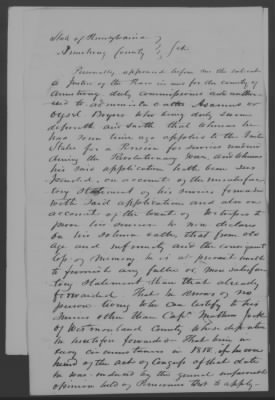 State of Pennsylvania
Armstrong County } Sct
Personally appeared before me the subscriber
a Justice of the Peace in and for the County of
Armstrong duly commissioned and authori-
sed to administer oaths
Boyers who being duly sworn
deposeth and saith that whereas he
has some time ago applied to the United
States for a Pension for services rendered
during the Revolutionary War, and whereas
his said application hath been sus-
pended, on account of the unsatisfac-
tory statement of his services forwarded
with said application and also on
account of the want of Witnesses to
prove his services he now declares
on his solemn oath, that from old
age and infirmity and the consequent
loss of memory he is at present unable
to furnish any fuller or more satisfac-
tory statement than that already
forwarded. That he knows of no
person living who can certify to his
services other than Capt. Mathew Jack
of Westmoreland County whose deposition
is heretofore forwarded. That being in
easy circumstances in 1818, if he ever
heard of the act of Congress of that date
he was induced by the general unfavorable
opinion held of Pensions not to apply